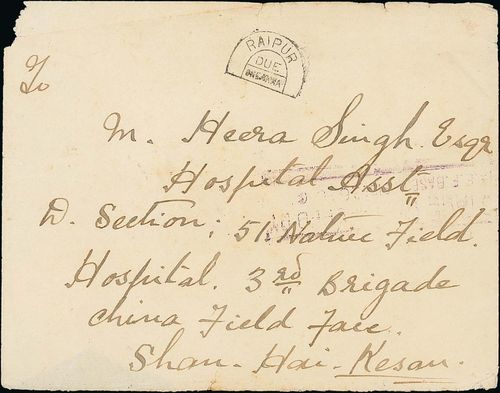 RAIPUR
DUE
ONE ANNA
To
M. Heera Singh Esqr
Hospital Asst
D. Section; 51 Native Field.
Hospital. 3rd Brigade
China Field Face.
Shan-Hai-Kesan.